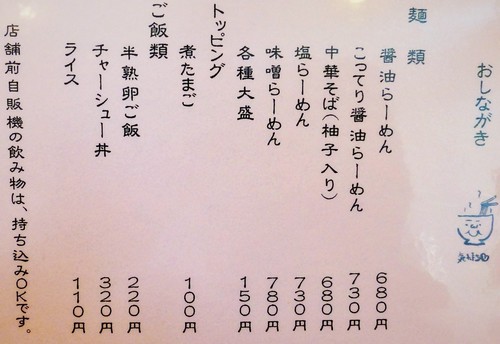 おしながき
麺類
醤油らーめん 680円
こってり醤油らーめん 730円
中華そば(柚子入り) 680円
塩らーめん 730円
味噌らーめん 780円
各種大盛 150円
トッピング
煮たまご 100円
ご飯類
半熟卵ご飯 220円
チャーシュー丼 320円
ライス 110円
店舗前自販機の飲み物は、持ち込みOKです。